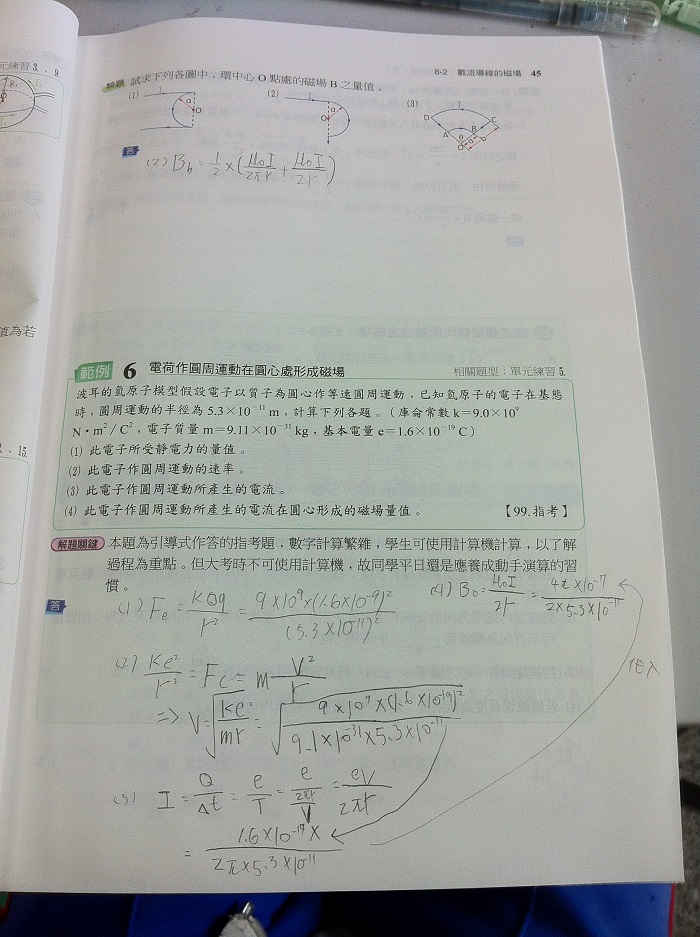 8-2 載流導線的磁場 45
元練習 3、9
類題 試求下列各圖中，環中心 O 點處的磁場 B 之量值。
(1) I a O (2) I a O (3) I D A B C θ O a b
答
(2) B_b = 1/2 × (μ₀I/2πr + μ₀I/2r)
值為若
、15.
範例 6 電荷作圓周運動在圓心處形成磁場 相關題型：單元練習 5.
波耳的氫原子模型假設電子以質子為圓心作等速圓周運動，已知氫原子的電子在基態
時，圓周運動的半徑為 5.3×10⁻¹¹ m，計算下列各題。（庫侖常數 k=9.0×10⁹
N·m²/C²，電子質量 m=9.11×10⁻³¹ kg，基本電量 e=1.6×10⁻¹⁹ C）
(1) 此電子所受靜電力的量值。
(2) 此電子作圓周運動的速率。
(3) 此電子作圓周運動所產生的電流。
(4) 此電子作圓周運動所產生的電流在圓心形成的磁場量值。 【99.指考】
解題關鍵 本題為引導式作答的指考題，數字計算繁雜，學生可使用計算機計算，以了解
過程為重點。但大考時不可使用計算機，故同學平日還是應養成動手演算的習
慣。
答
(1) Fe = KQq/r² = 9×10⁹×(1.6×10⁻¹⁹)²/(5.3×10⁻¹¹)²
(4) B₀ = μ₀I/2r = 4π×10⁻⁷/2×5.3×10⁻¹¹
代入
(2) Ke²/r² = Fc = m V²/r
=> V = √(Ke²/mr) = √(9×10⁹×(1.6×10⁻¹⁹)²/9.1×10⁻³¹×5.3×10⁻¹¹)
(3) I = Q/Δt = e/T = e/(2πr/V) = eV/2πr
= 1.6×10⁻¹⁹×/2π×5.3×10⁻¹¹